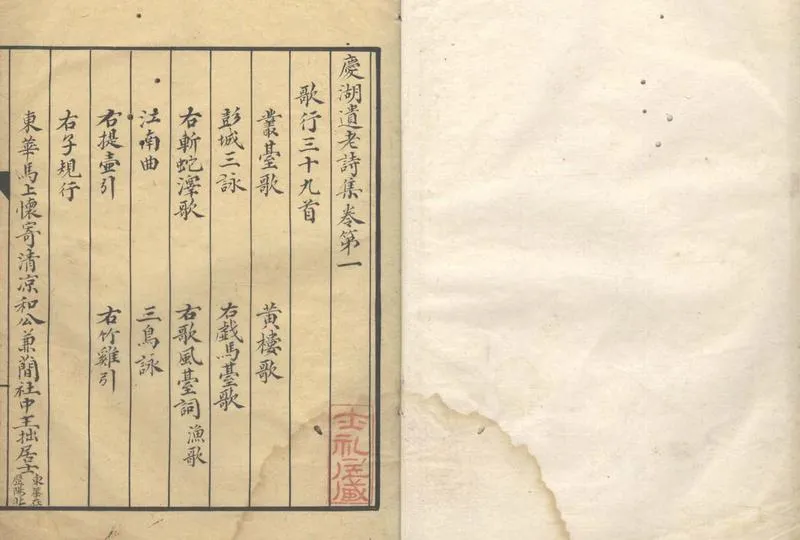 慶湖遺老詩集卷第一
歌行三十九首
叢臺歌　黃樓歌
彭城三詠　右戯馬臺歌
右斬蛇澤歌　右歌風臺詞　漁歌
江南曲　三鳥詠
右提壺引　右竹雞引
右子規行
東華馬上懷寄清凉和公兼簡社中王拙居士
東華在
歷陽北
士礼居藏